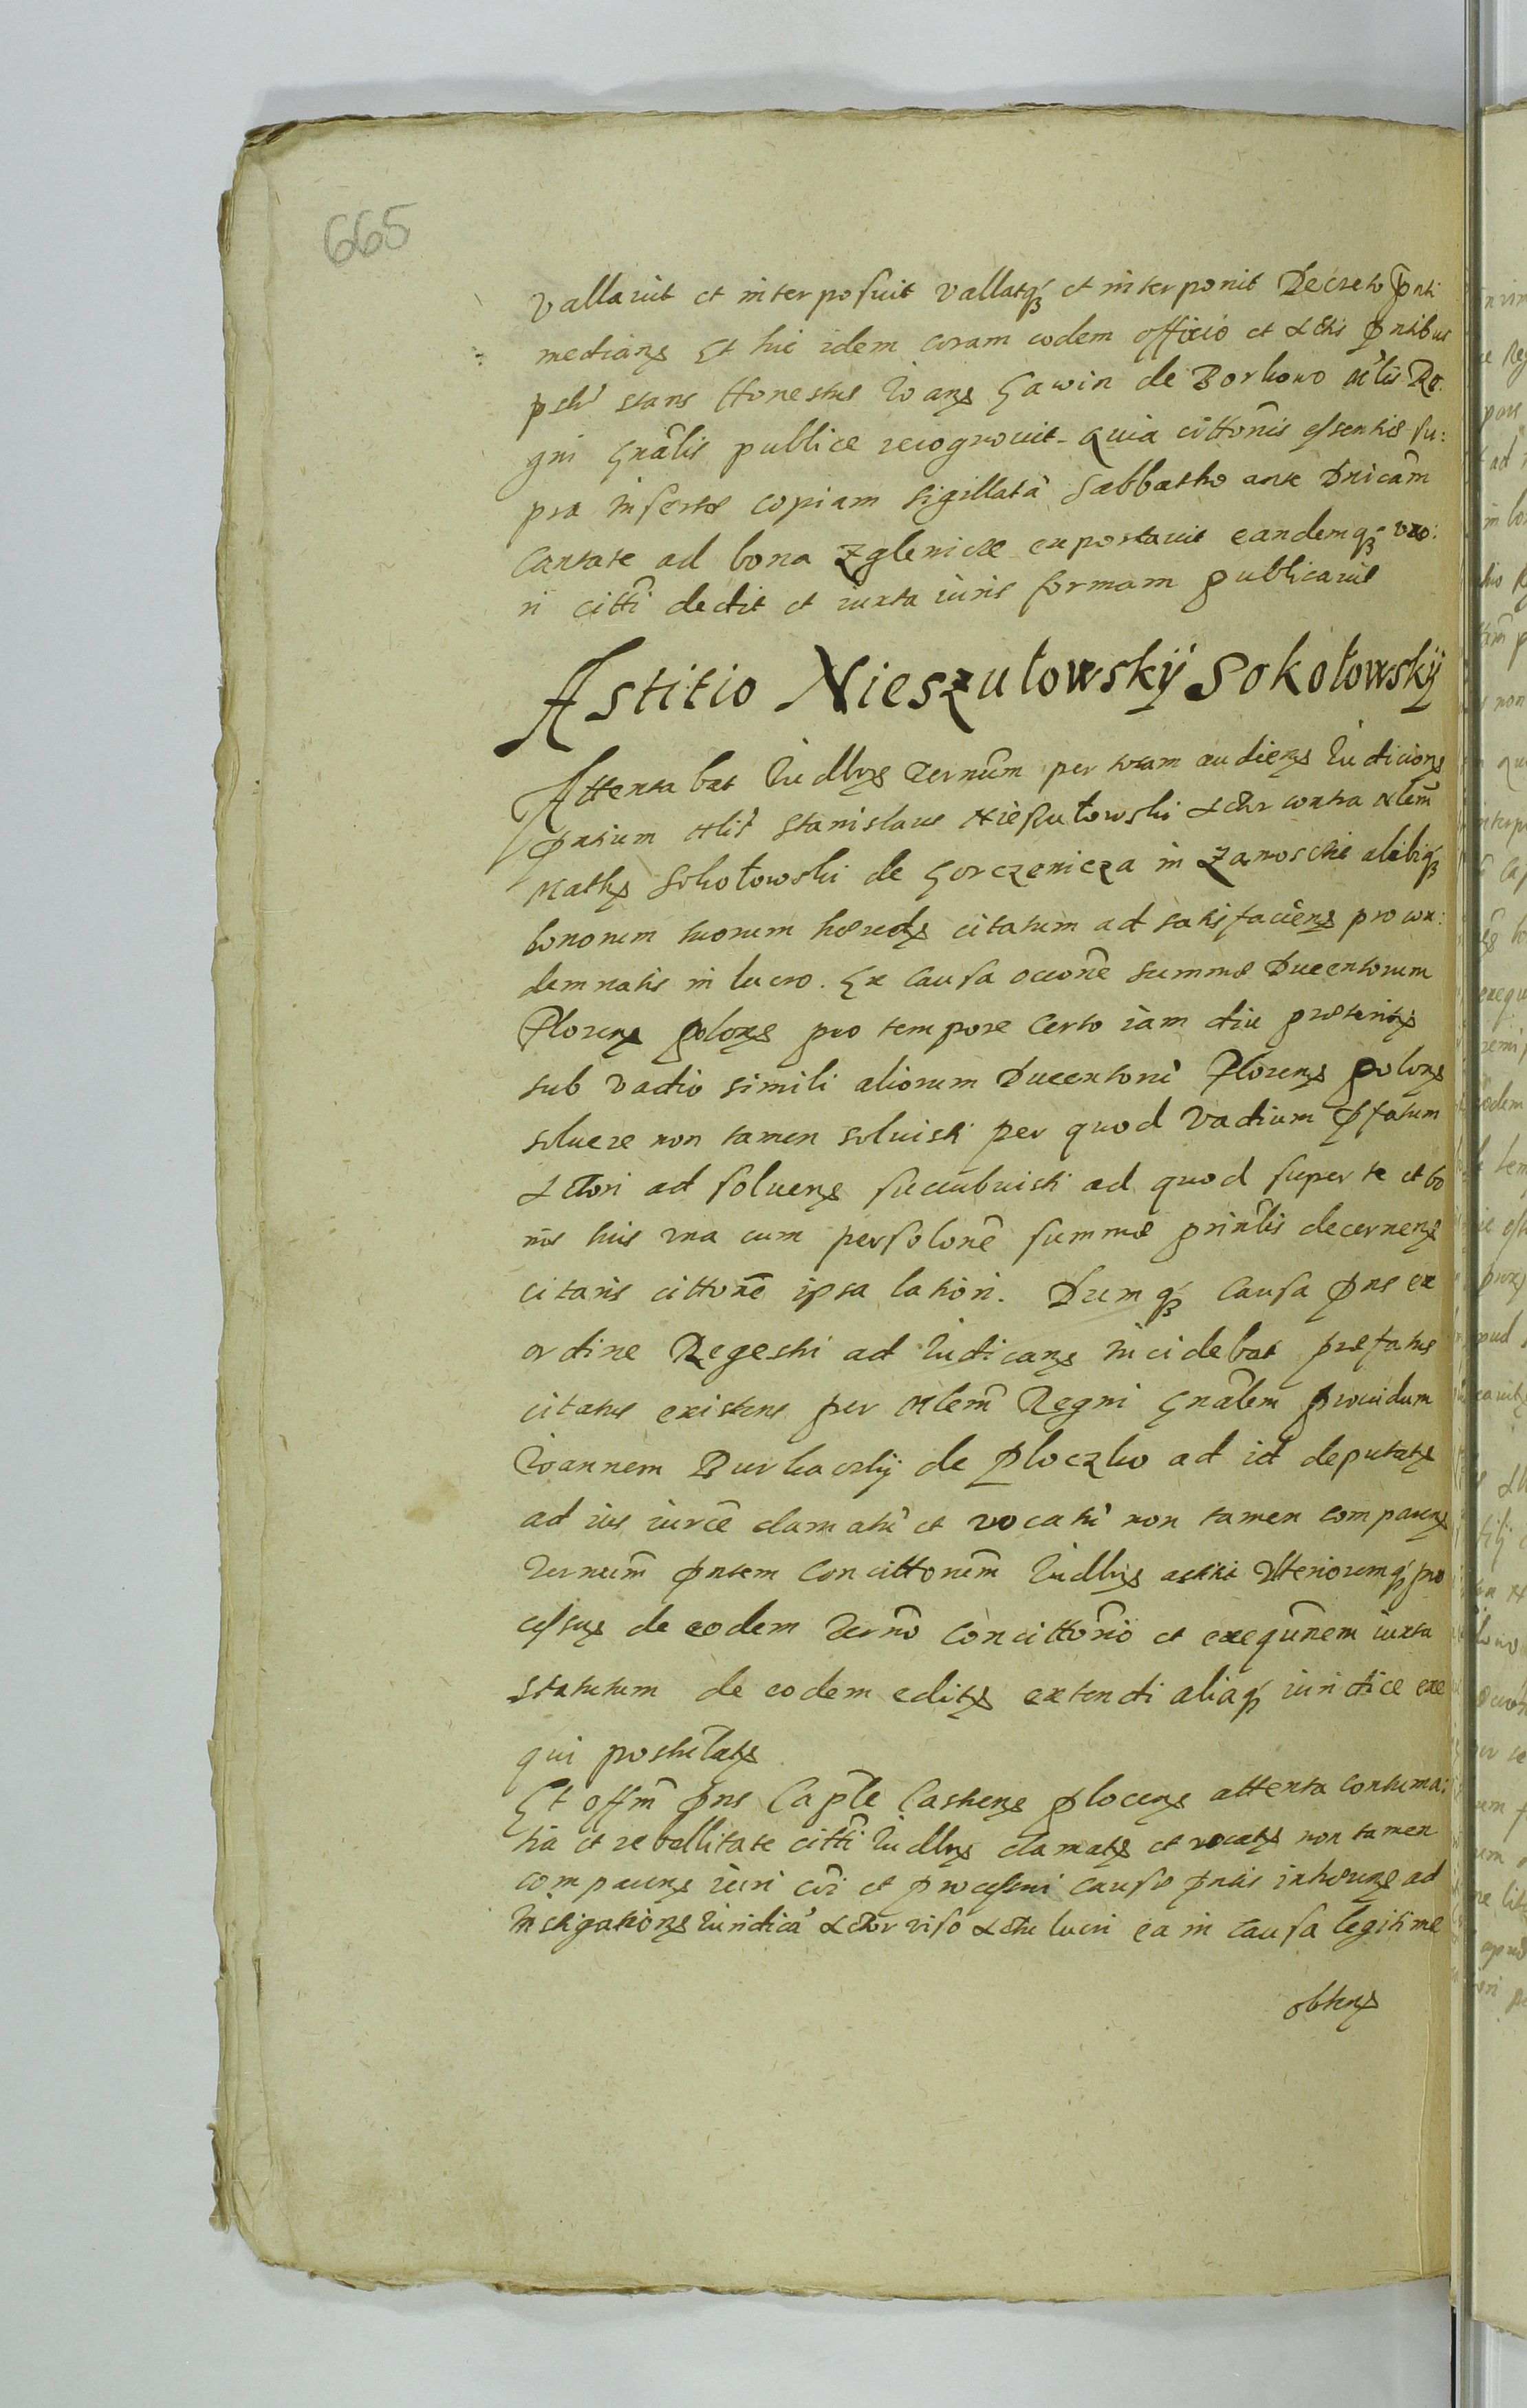 665
vallauit et interposuit vallatq́ʒ et interponit Decreto pnti
medians Et hic idem coram eodem officio et Actis pntibus
pstr stans Honestus Ioans Gawin de Borkowo Mlis Re:
gni Gnãlis publice recognouit quia cittonis essentis su:
pra insertæ copiam sigillatã Sabbatho ante Dnicam
Cantate ad bona Zglenicze exportauit eandemqʒ uxo:
ri citti dedit et iuxta iuris formam publicauit
Astitio Nieszułowskÿ Sokołowskÿ
Attentabat Iudlr Ternum per horam audiens Iudicions
pntium Nlis Stanislaus Niesułowski Actor contra Nlem
Maths Sokołowski de Gorczenicza in Zamoscie alibiqʒ
bonorum tuorum hæreds citatum ad satisfaciens pro con:
demnatis in lucro. Ex causa occone summæ Ducentorum
Florens polons pro tempore certo iam diu præterits
sub vadio simili aliorum Ducentoru Florens polons
soluere non tamen soluisti per quod vadium pfatum
Actori ad soluens succubuisti ad quod super te et bo
nis tuis vna cum persolone summæ prinlis decernens
citaris cittone ipsa latiori. Dumqʒ causa pns ex
ordine Regestri ad iudicans incidebat præfatus
citatus existens per Mlem Regni Gnalem prouidum
Ioannem Burkaczky de Ploczko ad id deputats
ad ius iurce clamatus et vocatus non tamen comparens
Ternum pntem Concittonem Iudlr astiti vlterioremqʒ pro
cessus de eodem Terno concittorio et exequnem iuxta
statutum de eodem edits extendi aliaqʒ iuridice exe
qui postulats
Et offm pns Caple Castrens plocens attenta contuma:
tia et rebellitate citti Iudlr clamats et vocats non tamen
comparens iuri coi et processui causæ pntis inhærens ad
instigations iuridica Actor viso Actu lucri ea in causa legitime
obtens